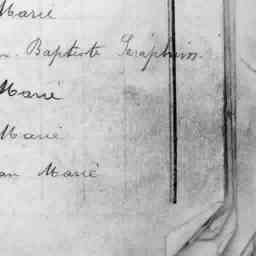 Marie
n. Baptiste Séraphin.
Marié
Marié
an Marié